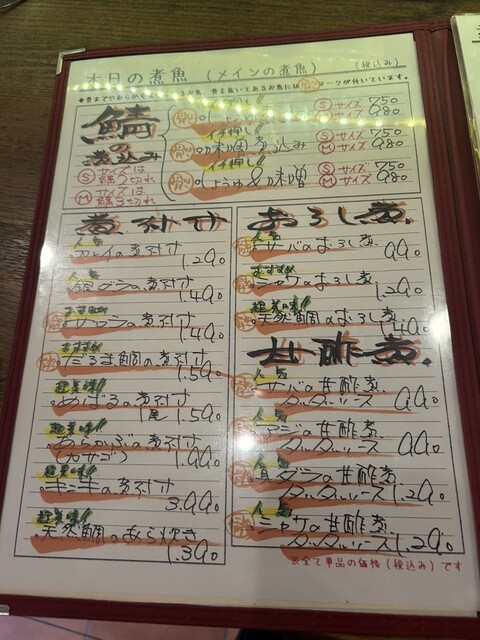 本日の煮魚 (メインの煮魚) (税込み)
マークが付いています。
鯖の煮込み
Ⓢサイズは
鯖2切れ
Ⓜサイズは
鯖3切れ
イチ押し!!
Ⓢサイズ 750
Ⓜサイズ 980
イチ押し!!
味噌煮込み
Ⓢサイズ 750
Ⓜサイズ 980
イチ押し!!
しょうゆ&味噌
Ⓢサイズ 750
Ⓜサイズ 980
煮付け
人気
カレイの煮付け
1.290
人気
銀ダラの煮付け
1.490
おすすめ
の煮付け
1.490
おすすめ
鯛の煮付け
1.590
超美味!!
めばるの煮付け
1尾 1.590
超美味!!
あらかぶの煮付け
(カサゴ) 1.990
超美味!!
キンキの煮付け
3.990
超美味!!
天然鯛のあら炊き
1.390
おろし煮
人気
サーバのおろし煮
990
おすすめ
シャケのおろし煮
1.290
超美味!!
天然鯛のおろし煮
1.490
甘酢煮
人気
サーバの甘酢煮
タルタルソース 990
人気
アジの甘酢煮
タルタルソース 990
人気
ダラの甘酢煮
タルタルソース 1.290
人気
シャケの甘酢煮
タルタルソース 1.290
※全て単品の価格(税込み)です